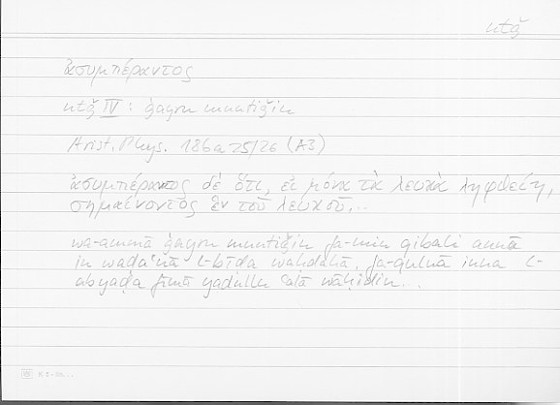 ntǧ
ἀσυμπέραντος
ntǧ IV : ġayru muntiǧin
Arist. Phys. 186a25/26 (A3)
ἀσυμπέραντος δὲ ὅτι, εἰ μόνα τὰ λευκὰ ληφθείη,
σημαίνοντος ἓν τοῦ λευκοῦ...
wa-ammā ġayru muntiǧin fa-min qibali annā
in waḍaʿnā l-bīḍa waḥdahā, fa-qulnā inna l-
abyaḍa fīmā yadullu ʿalā wāḥidin...